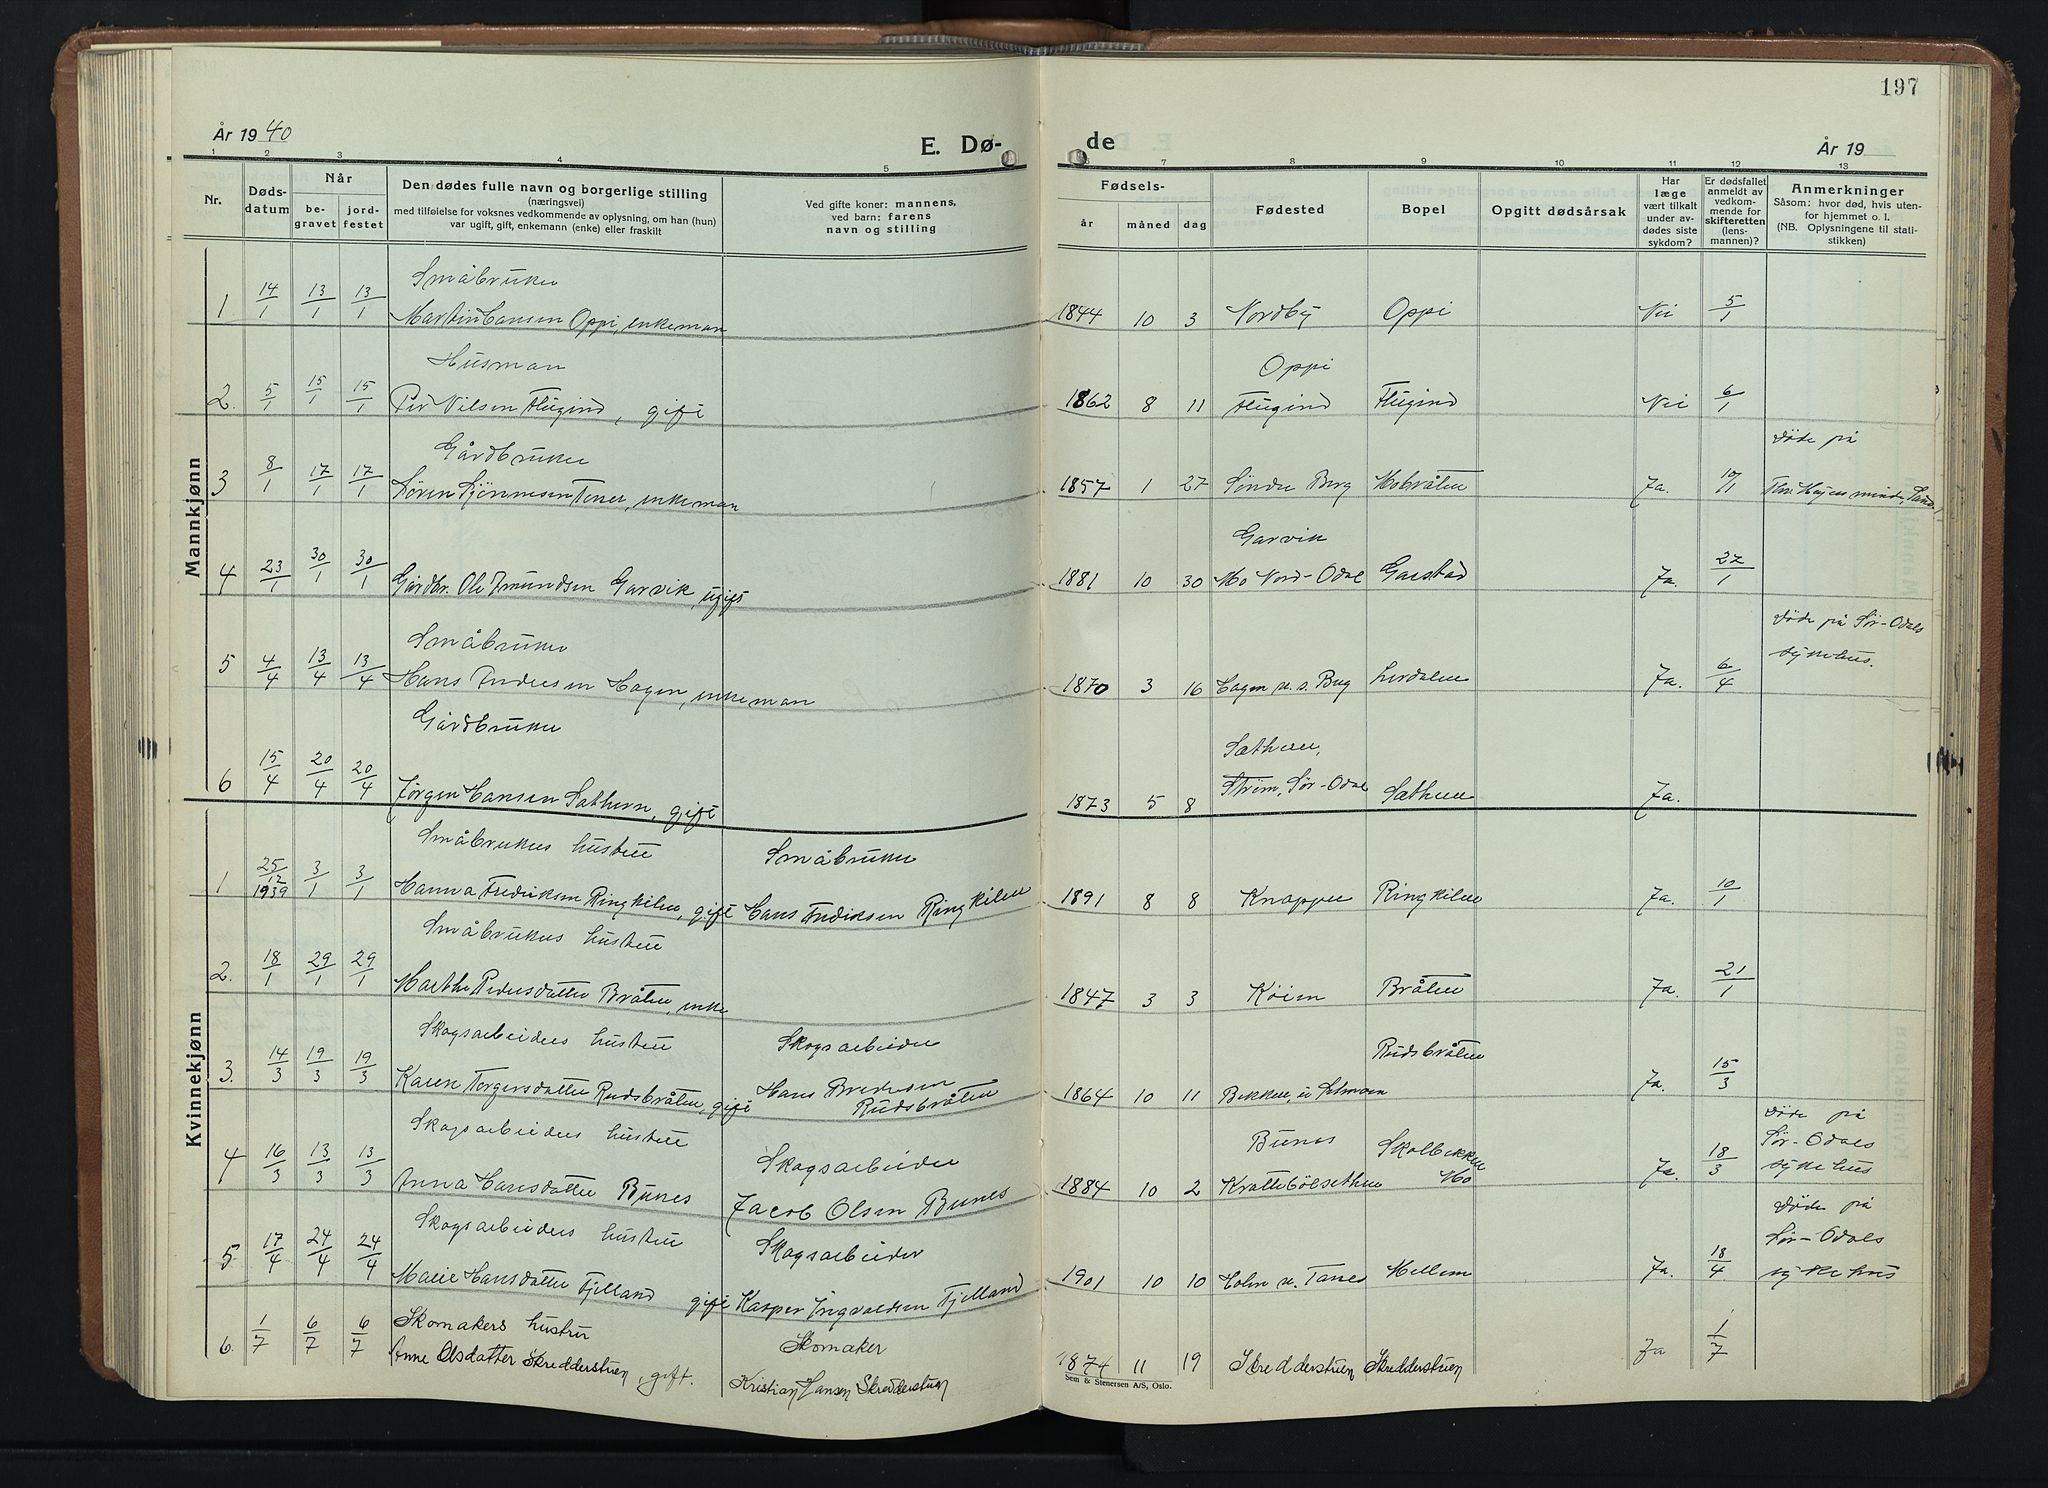 197
År 1940
E. Dø-
de
År 19
1 2 3 4 5
6 7 8 9 10 11 12 13
Nr.
Døds-
datum
Når
be-
gravet
jord-
festet
Den dødes fulle navn og borgerlige stilling
(næringsvei)
med tilføielse for voksnes vedkommende av oplysning, om han (hun)
var ugift, gift, enkemann (enke) eller fraskilt
Ved gifte koner: mannens,
ved barn: farens
navn og stilling
Fødsels-
år
måned
dag
Fødested
Bopel
Opgitt dødsårsak
Har
læge
vært tilkalt
under av-
dødes siste
sykdom?
Er dødsfallet
anmeldt av
vedkom-
mende for
skifteretten
(lens-
mannen)?
Anmerkninger
Såsom: hvor død, hvis uten-
for hjemmet o. l.
(NB. Oplysningene til stati-
stikken)
Mannkjønn
Småbruker
1 14/1 13/1 13/1 Martin Hansen Oppi, enkeman 1844 10 3 Nordby Oppi Nei 5/1
Husman Oppi
2. 5/1 15/1 15/1 Per Nilsen Flugind, gift 1862 8 11 Flugind Flugind Nei 6/1
Gårdbruker døde på
3 8/1 17/1 17/1 Sören Tener, enkeman 1857 1 27 Søndre Berg Mobråten Ja. 10/1 minde, Sand
Garvik
4 23/1 30/1 30/1 Gårdbr. Ole Amundsen Garvik, ugift 1881 10 30 Mo Nord-Odal Garstad Ja. 27/1
Småbruker døde på Sør-Odals
sykehus.
5 4/4 13/4 13/4 Hans Andersen Hagen, enkeman 1870 3 16 Hagen u. s. Berg Lerdalen Ja. 6/4
Gårdbruker Sætheren,
Strøm, Sør-Odal
6 15/4 20/4 20/4 Jørgen Hansen Sætheren, gift 1873 5 8 Sætheren Ja.
Kvinnekjønn
Småbrukers hustru Småbruker
1 25/12 1939 3/1 3/1 Hanna Fredriksen Ringkilen, gift Hans Fredriksen Ringkilen 1891 8 8 Knappen Ringkilen Ja. 10/1
Småbrukers hustru
2. 18/1 29/1 29/1 Marthe Pedersdatter Bråten, enke 1847 3 3 Køien Bråten Ja. 21/1
Skogsarbeiders hustru Skogsarbeider Rudsbråten
3. 14/3 19/3 19/3 Karen Torgersdatter Rudsbråten, gift Hans Bredesen
Rudsbråten 1864 10 11 Bekken, Ja. 15/3
Skogsarbeiders hustru Skogsarbeider Bunes Skolbekken
Mo døde på
Sør-Odals
sykehus
4 16/3 13/3 13/3 Anna Hansdatter Bunes Jacob Olsen Bunes 1884 10 2 Krattebölsetren Ja. 18/3
Skogsarbeiders hustru Skogsarbeider døde på
Sør-Odals
sykehus
5 17/4 24/4 24/4 Marie Hansdatter Fjelland gift Kasper Ingvaldsen Fjelland 1901 10 10 Holm u. Tanes Mellem Ja. 18/4
Skomakers hustru Skomaker
6. 1/7 6/7 6/7 Anne Olsdatter Skredderstuen, gift. Kristian Hansen Skredderstuen 1874 11 19 Skredderstuen Skredderstuen Ja 1/7
Sem & Stenersen A/S, Oslo.